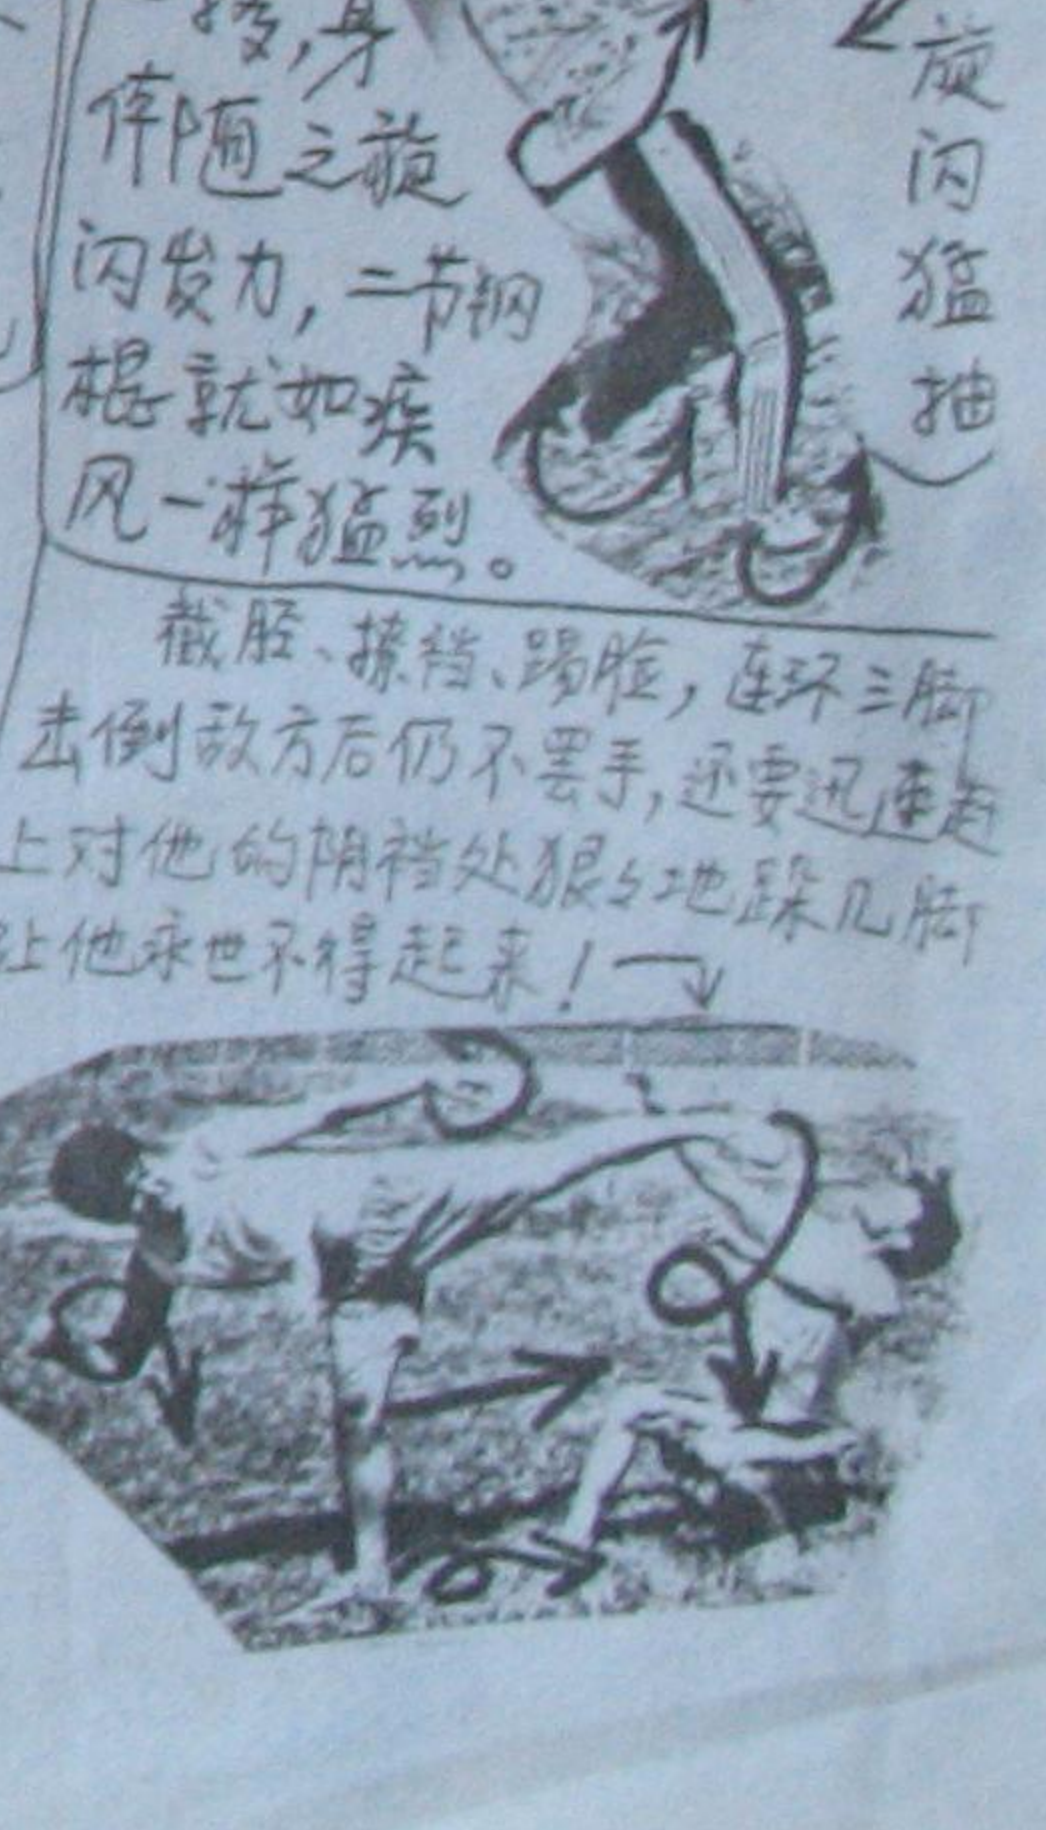 身
体随之旋
闪发力，二节钢
棍就如疾
风一样猛烈。
旋闪猛抽
截胫、撩裆、踢脸，连环三脚
击倒敌方后仍不罢手，还要迅速赶
上对他的阴裆处狠々地跺几脚
让他永世不得起来！